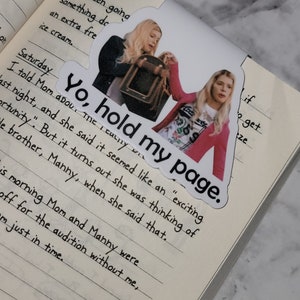 something
an extra fre
ice cream.
to get
Saturday
I told Mom about the
last night, and she said it seemed like an "exciting
opportunity." But it turns out she was thinking of
le brother, Manny, when she said that.
is morning Mom and Manny were
off for the audition without me,
m just in time.
Yo, hold my page.